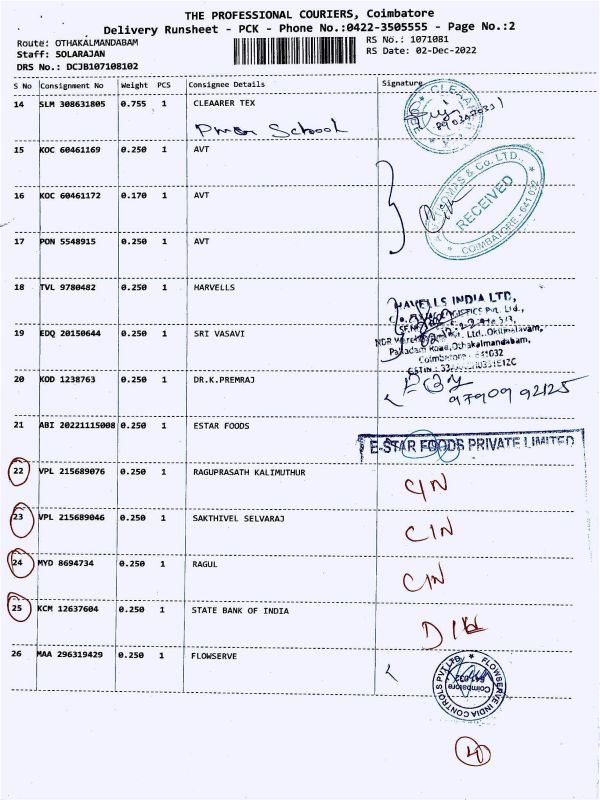 THE PROFESSIONAL COURIERS, Coimbatore
Delivery Runsheet - PCK - Phone No.:0422-3505555 - Page No.:2
Route: OTHAKALMANDABAM
RS No.: 1071081
Staff: SOLARAJAN
RS Date: 02-Dec-2022
DRS No.: DCJB107108102
S No Consignment No Weight PCS Consignee Details Signature
14 SLM 308631805 0.755 1 CLEAARER TEX
School
15 KOC 60461169 0.250 1 AVT
16 KOC 60461172 0.170 1 AVT
RECEIVED
COIMBATORE - 641 032
17 PON 5548915 0.250 1 AVT
18 TVL 9780482 0.250 1 HARVELLS
HAVELLS INDIA LTD,
19 EDQ 20150644 0.250 1 SRI VASAVI
Palladam Road, Othakalmandabam,
Coimbatore - 641032
20 KOD 1238763 0.250 1 DR.K.PREMRAJ
9790992125
21 ABI 20221115008 0.250 1 ESTAR FOODS
E-STAR FOODS PRIVATE LIMITED
22 VPL 215689076 0.250 1 RAGUPRASATH KALIMUTHUR
CIN
23 VPL 215689046 0.250 1 SAKTHIVEL SELVARAJ
CIN
24 MYD 8694734 0.250 1 RAGUL
CIN
25 KCM 12637604 0.250 1 STATE BANK OF INDIA
26 MAA 296319429 0.250 1 FLOWSERVE
FLOWSERVE INDIA CONTROLS PVT LTD
Coimbatore
641 032